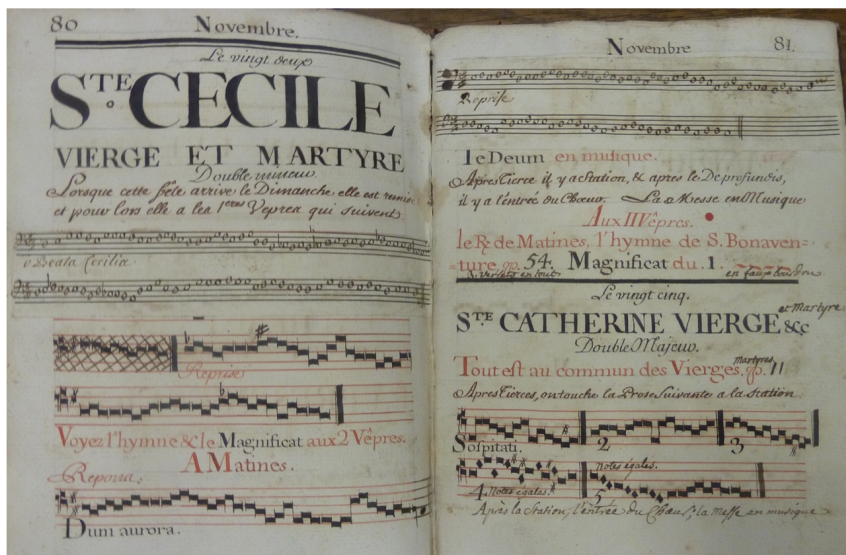 80 Novembre.
Le vingt deux
STE CECILE
VIERGE ET MARTYRE
Double mineur
Lorsque cette fête arrive le Dimanche elle est remise
et pour lors elle a les 1eres Vêpres qui suivent
o Beata Cecilia
Reprise
Voyez l'hymne & le Magnificat aux 2 Vêpres.
A Matines.
Repons.
Dum aurora.
Novembre 81.
Reprise
Te Deum en musique.
Apres Tierce il y a Station, & apres le De profundis,
il y a l'entrée du Chœur. La Messe en Musique
Aux II Vêpres.
le R. de Matines, l'hymne de S. Bonaven=
ture op. 54. Magnificat du 1. en faux bourdon
Versets en tout
Le vingt cinq.
et Martyre
STE CATHERINE VIERGE &c
Double Majeur.
martyres
Tout est au commun des Vierges, op. 11
Apres Tierces, on touche la Prose suivante a la Station.
Sospitati. 2 3
4 Notes égales. 5 notes égales.
Après la Station, l'entrée du Chœur, la messe en musique